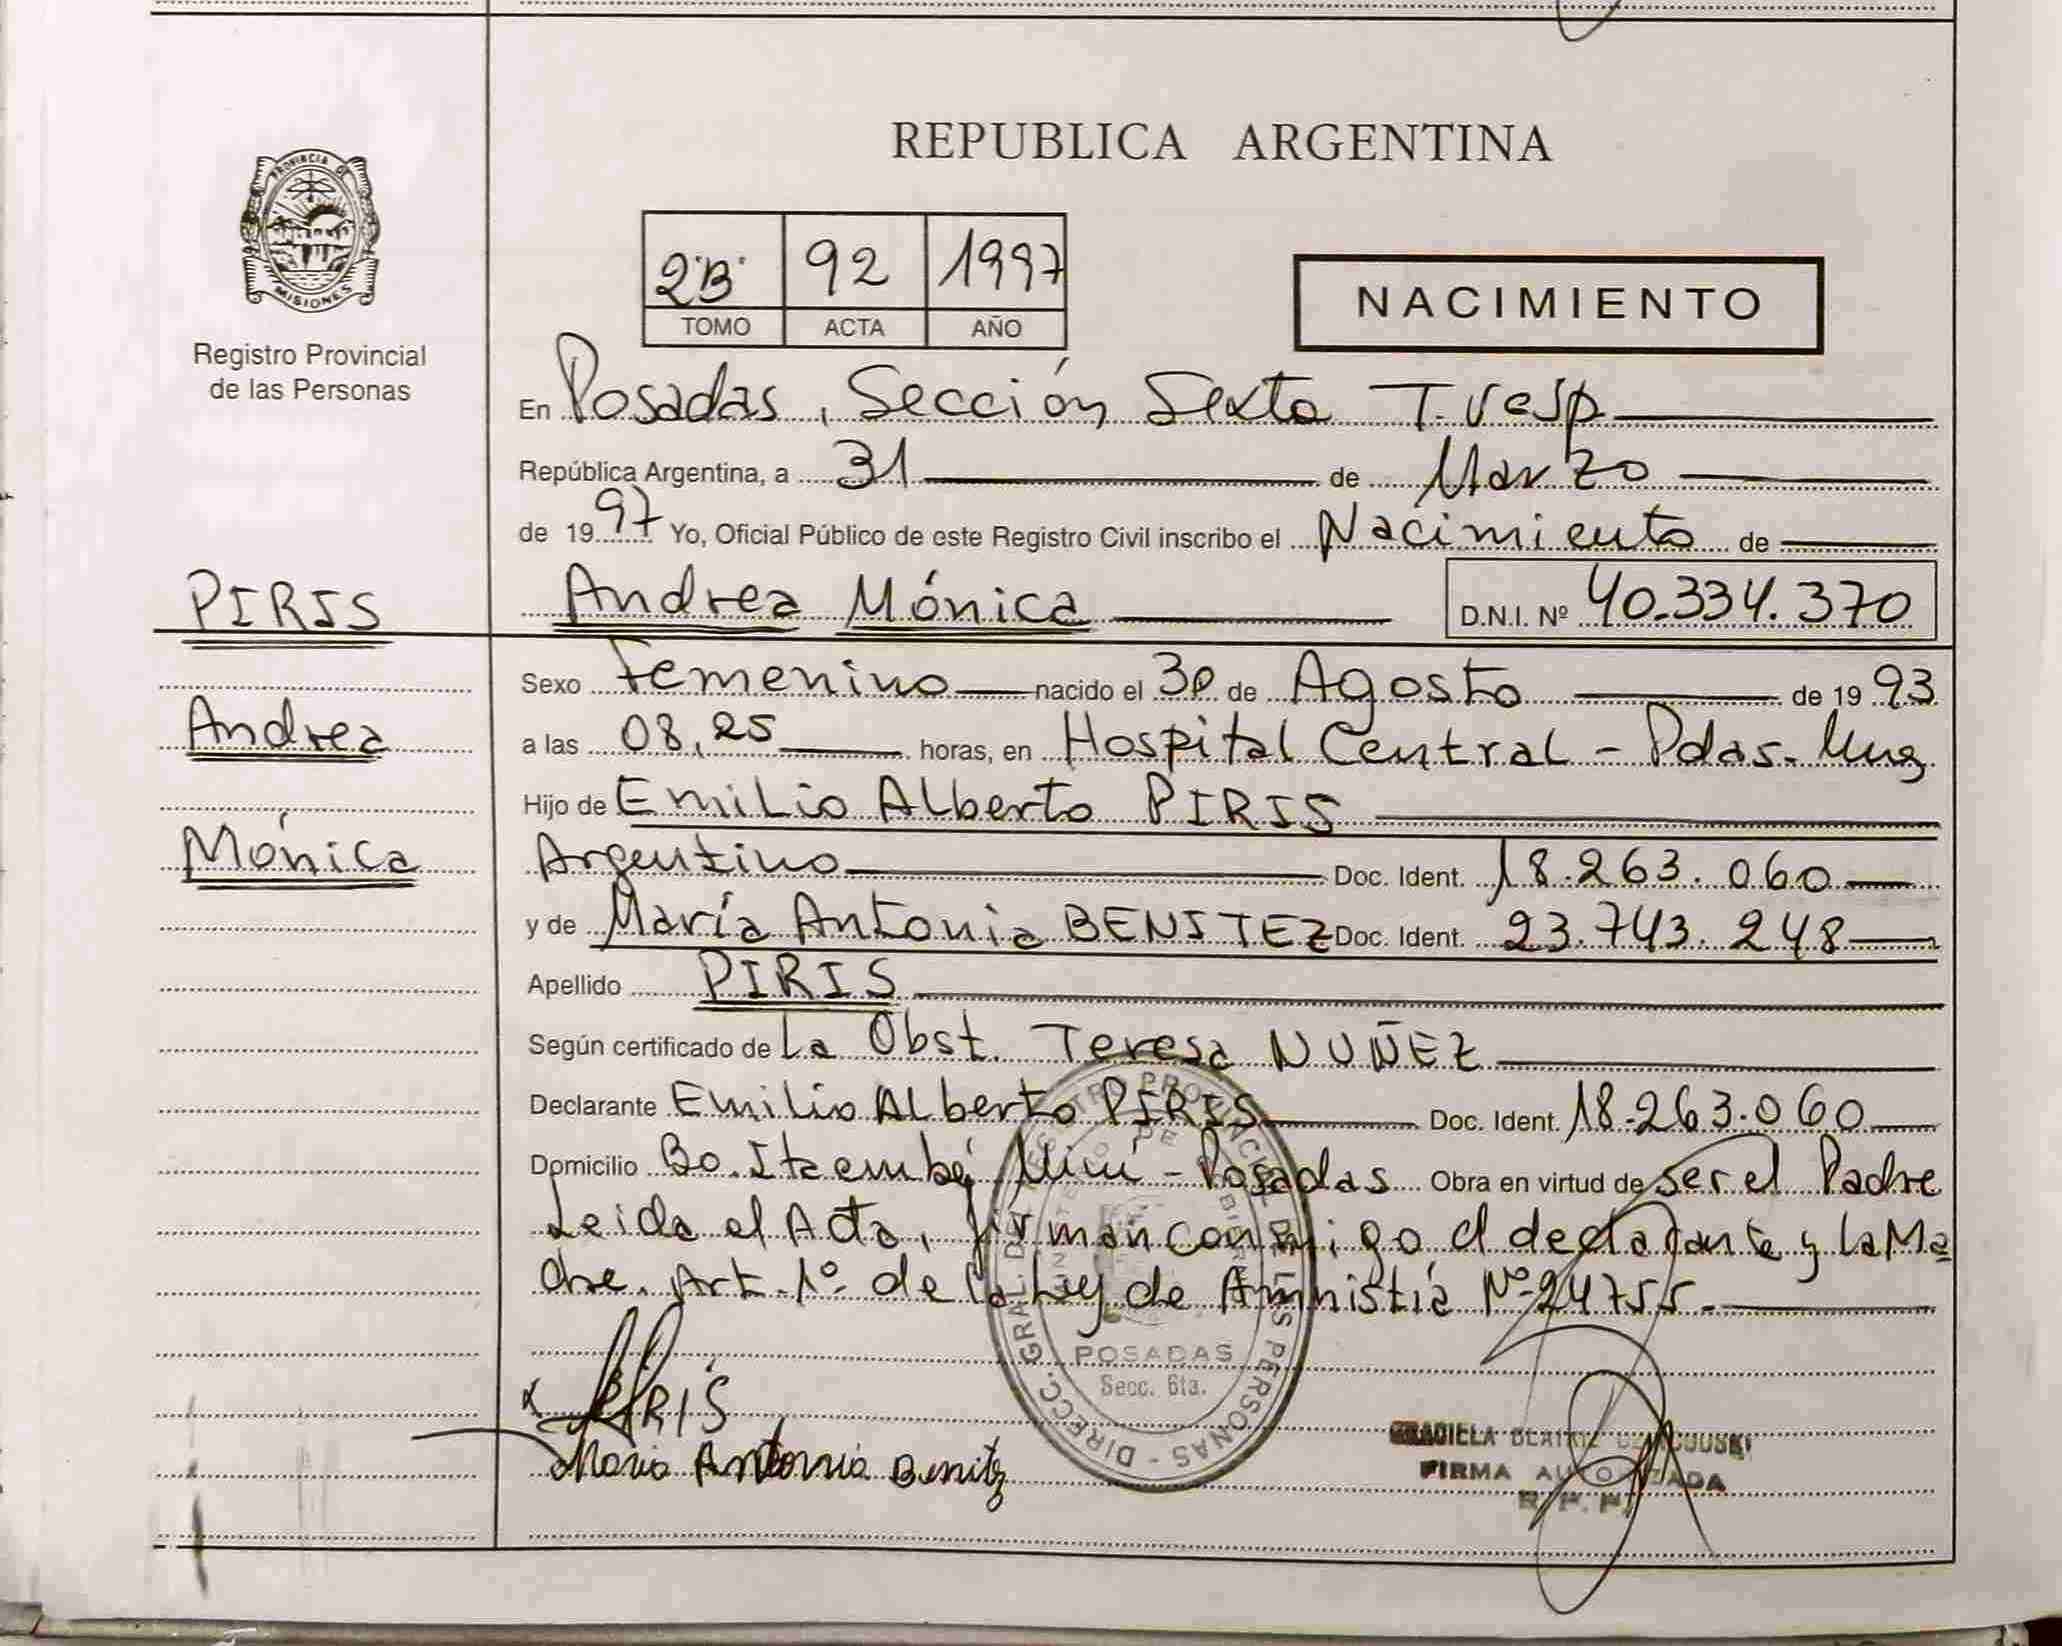 REPUBLICA ARGENTINA
PROVINCIA DE
MISIONES
Registro Provincial
de las Personas
2"B" 92 1997
TOMO ACTA AÑO
NACIMIENTO
En Posadas, Sección Sexta T. Vesp
República Argentina, a 31 de Marzo
de 1997 Yo, Oficial Público de este Registro Civil inscribo el Nacimiento de
PIRIS
Andrea Mónica D.N.I. Nº 40.334.370
Sexo Femenino nacido el 30 de Agosto de 1993
Andrea
a las 08,25 horas, en Hospital Central - Pdas.
Hijo de Emilio Alberto PIRIS
Mónica
Argentino Doc. Ident. 18.263.060
y de María Antonia BENITEZ Doc. Ident. 23.743.248
Apellido PIRIS
Según certificado de la Obst. Teresa NUÑEZ
Declarante Emilio Alberto PIRIS Doc. Ident. 18.263.060
Domicilio Bo. Itaembé Miní - Posadas Obra en virtud de ser el Padre
Leida el Acta, firman conmigo el declarante y la Ma
dre. Art. 1º de la Ley de Amnistía Nº 24755.
DIRECC. GRAL. DEL REGISTRO PROVINCIAL DE LAS PERSONAS
POSADAS
Secc. 6ta.
PIRIS
Maria Antonia Benitez
GRACIELA BEATRIZ
FIRMA AUTORIZADA
R. P. P.